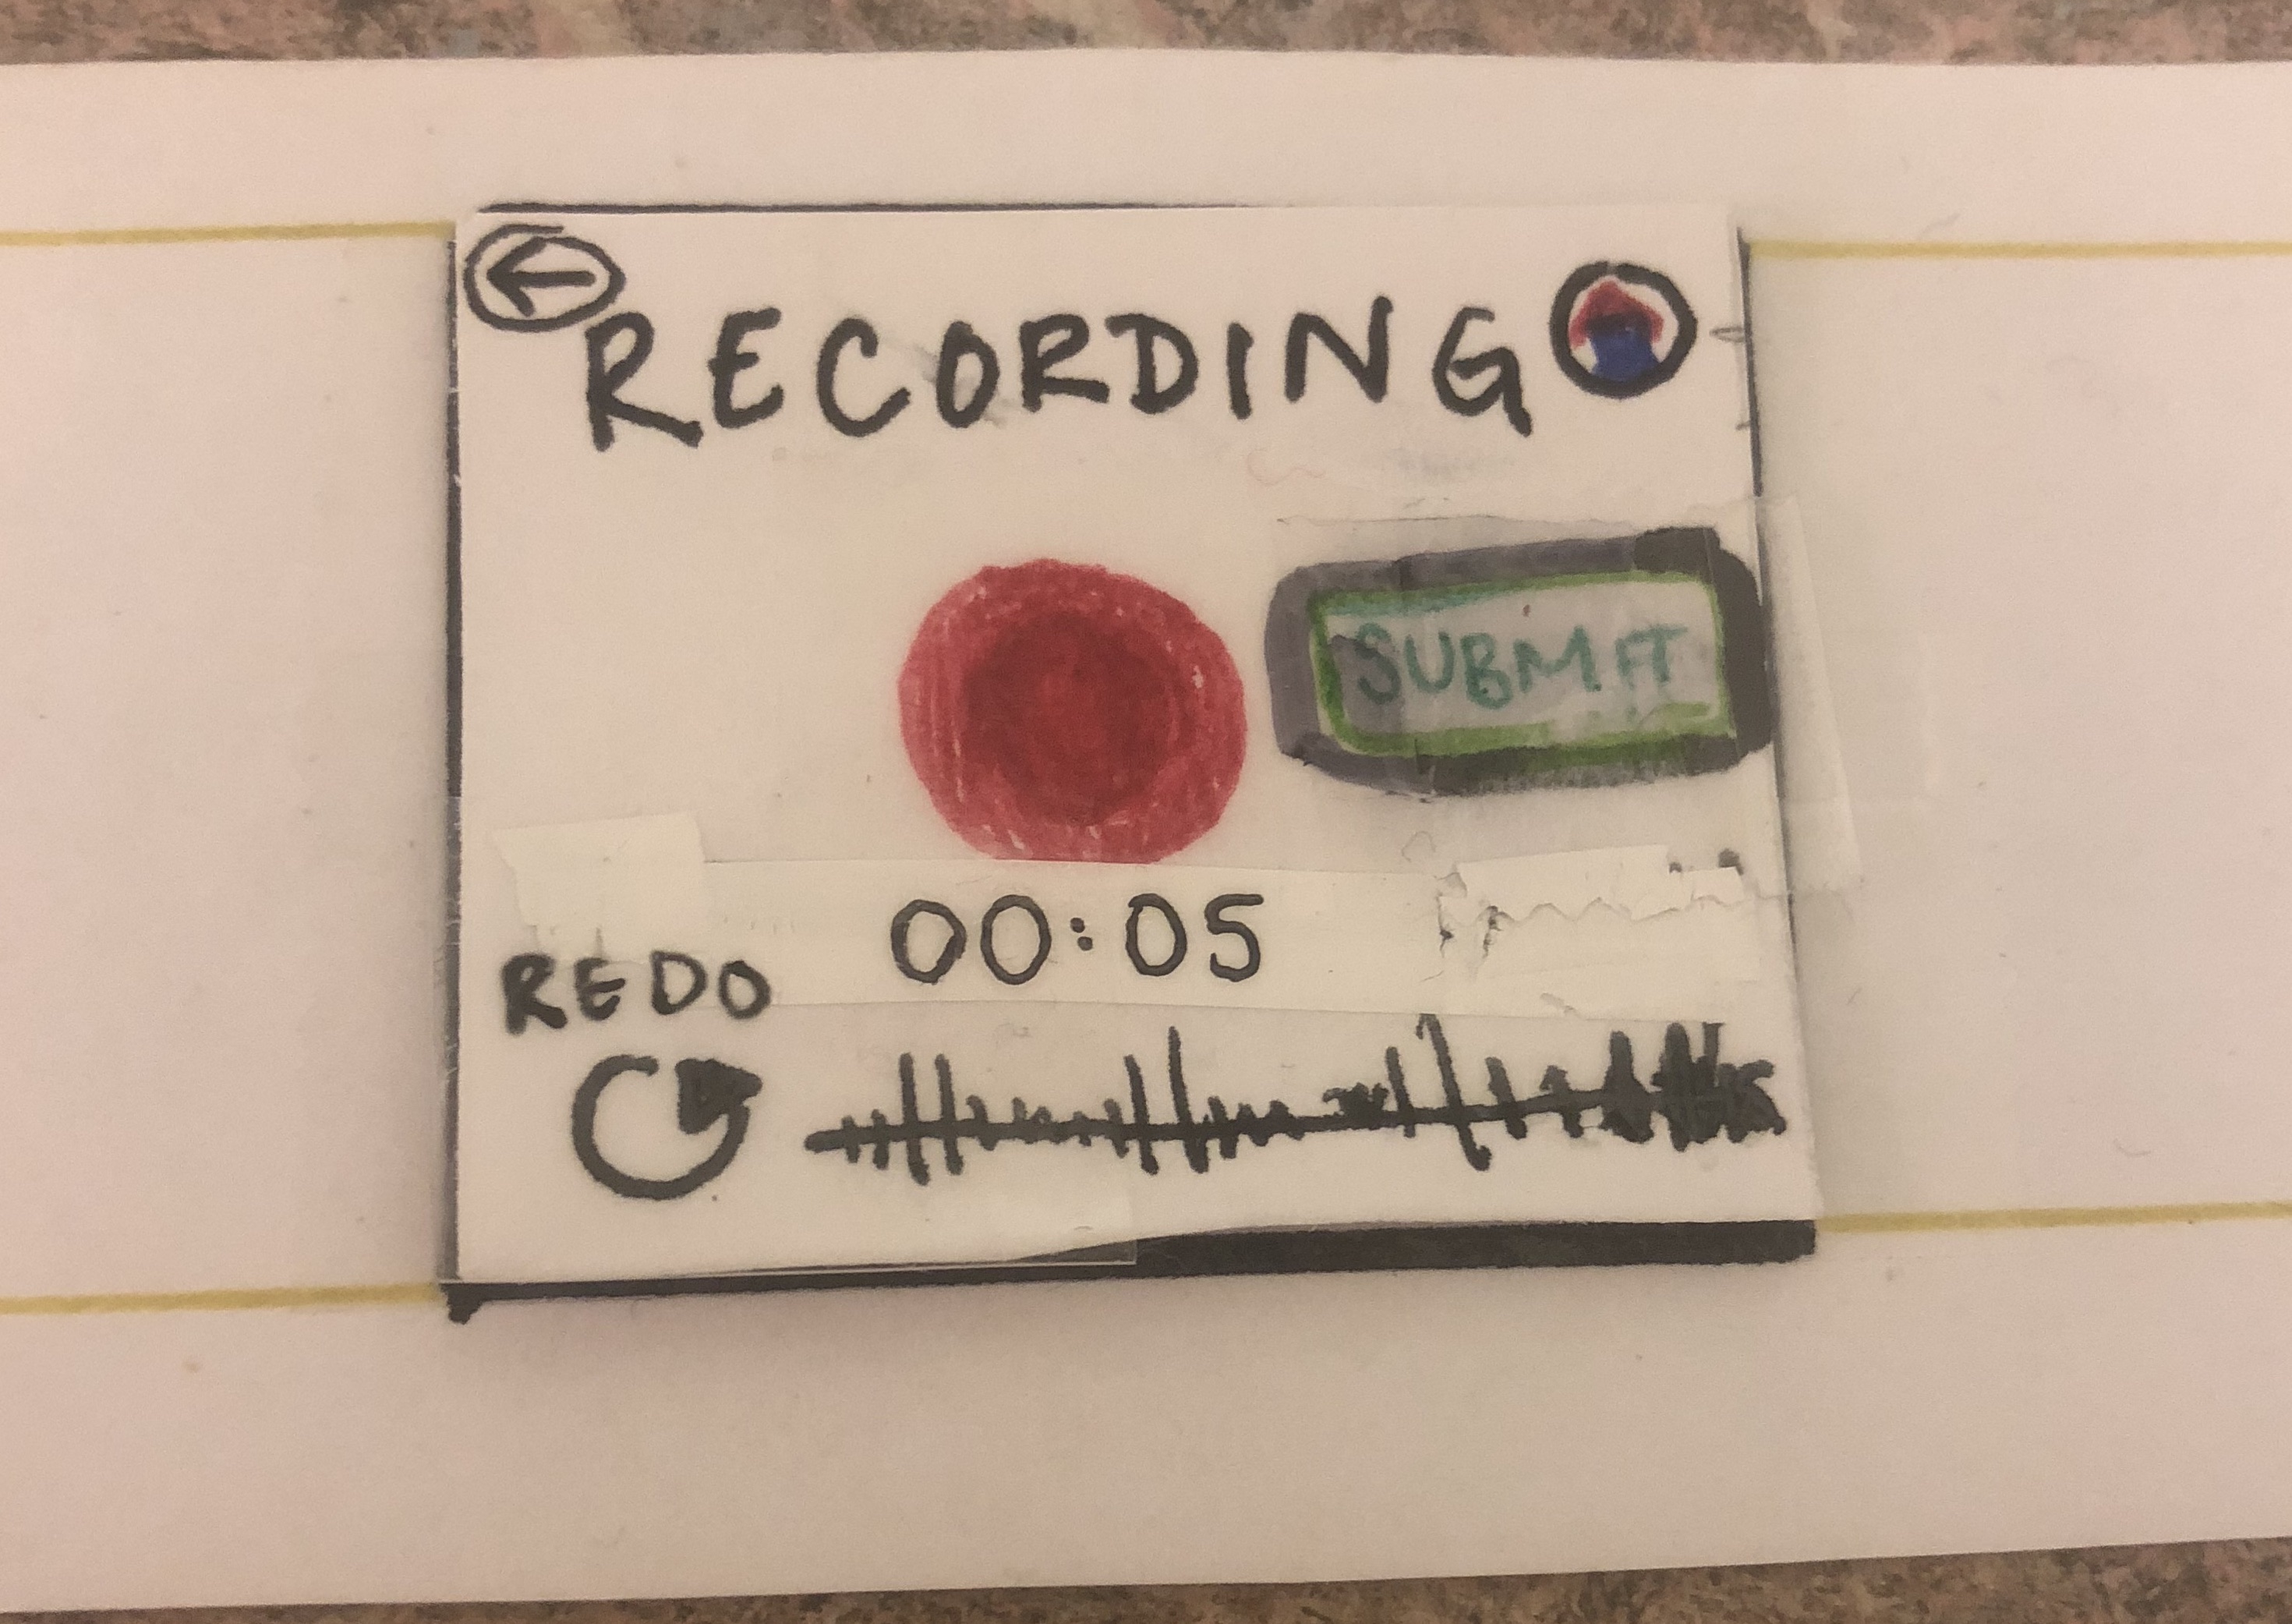 RECORDING
SUBMIT
00:05
REDO